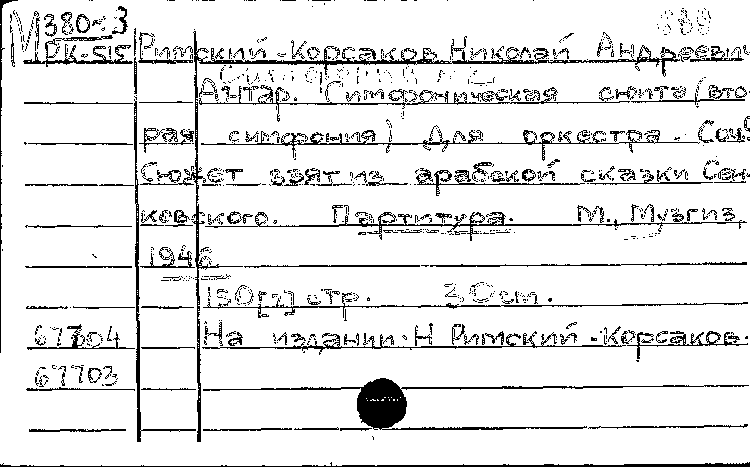 М 380ч3 889
РК-515 Римский-Корсаков Николай Андреевич
Симфония № 2
Антар. Симфоническая сюита (вто-
рая симфония) Для оркестра. Соч.9
Сюжет взят из арабской сказки Сен-
ковского. Партитура. М., Музгиз,
1946
150[2] стр. 30см.
67704 На издании: Н Римский-Корсаков.
67703